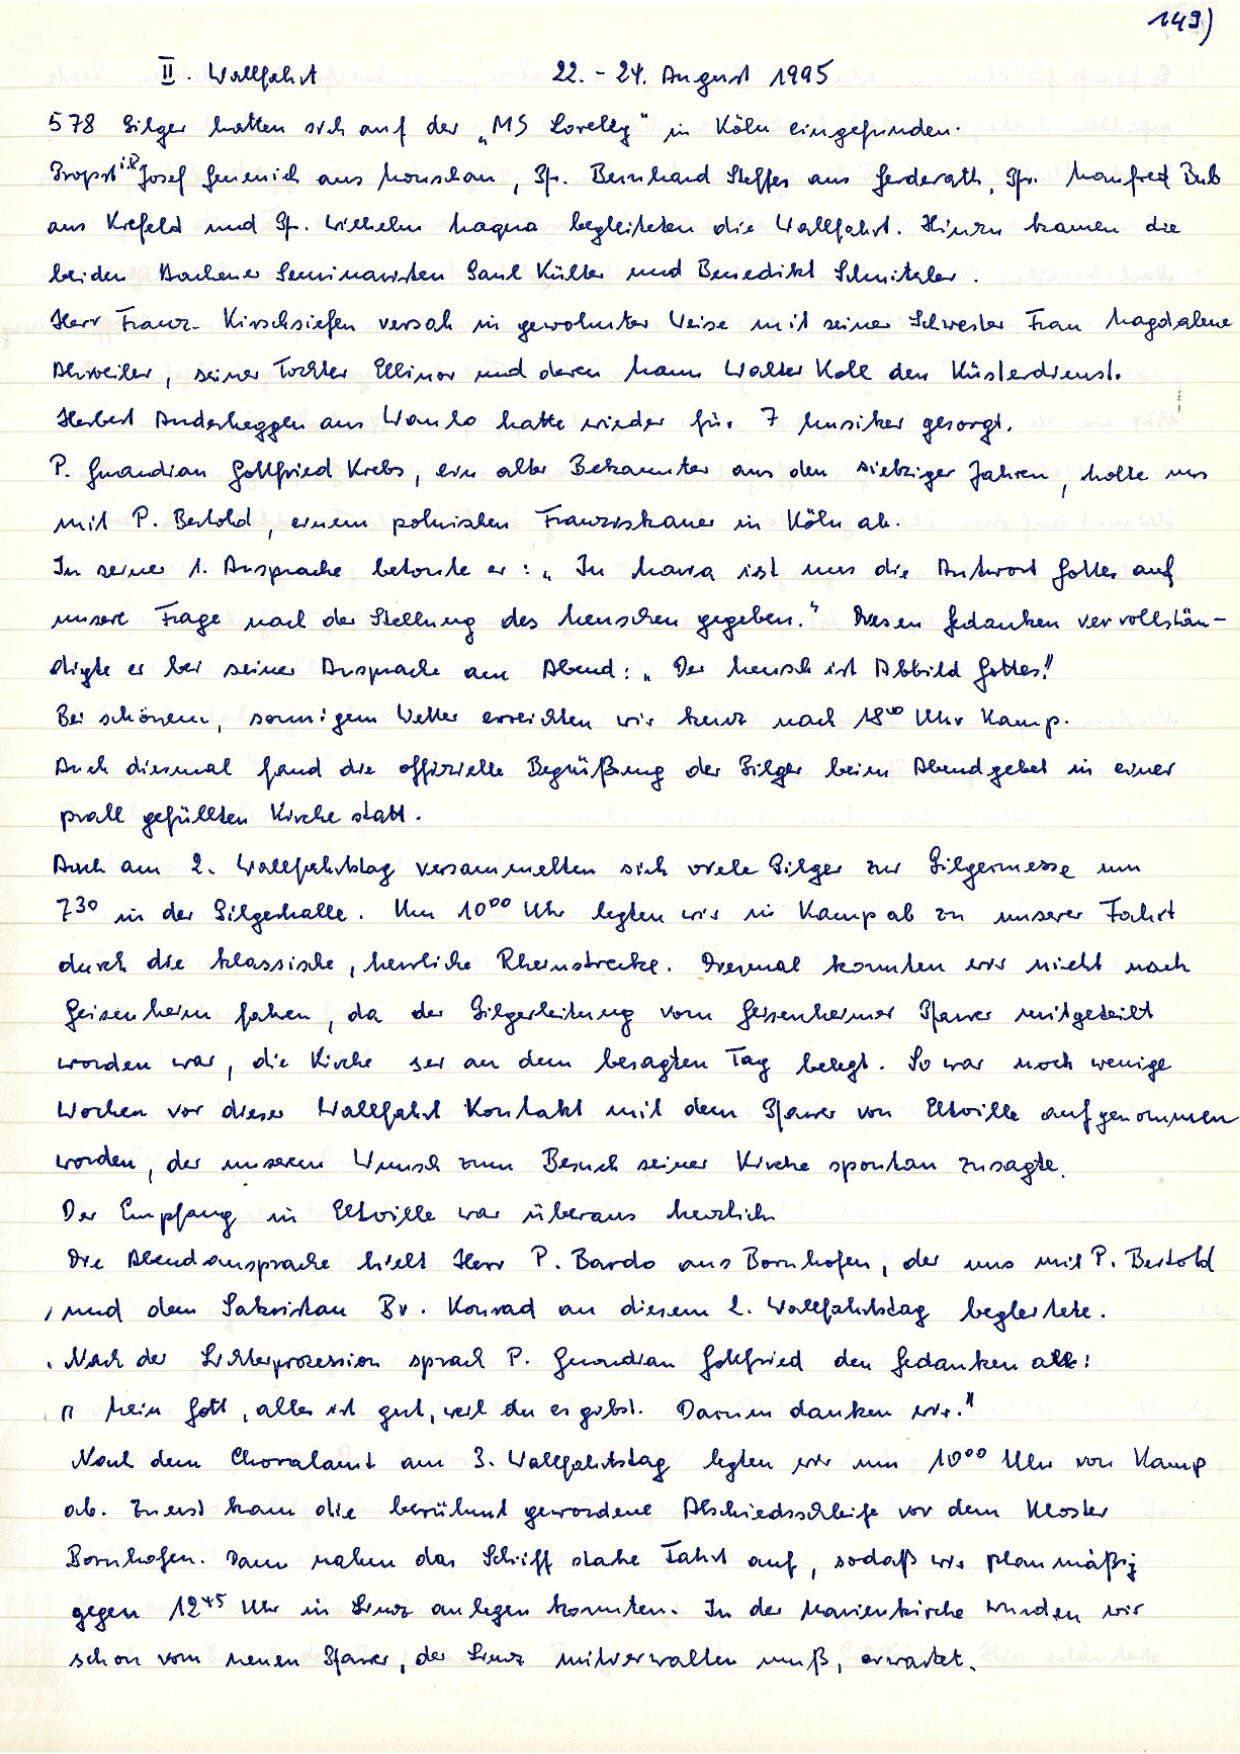 149)
II. Wallfahrt 22. - 24. August 1995
578 Pilger hatten sich auf der „MS Loreley“ in Köln eingefunden.
Propst i.R. Josef Jumenich aus Monschau, Pfr. Bernhard Steffes aus Gerderath, Pfr. Manfred Bub
aus Krefeld und Pfr. Wilhelm Maqua begleiteten die Wallfahrt. Hinzu kamen die
beiden Aachener Seminaristen Paul Külter und Benedikt Schnitzler.
Herr Franz-Kirschsiefen versah in gewohnter Weise mit seiner Schwester Frau Magdalene
Ahrweiler, seiner Tochter Ellinor und deren Mann Walter Koll den Küsterdienst.
Herbert Anderheggen aus Wanlo hatte wieder für 7 Musiker gesorgt.
P. Guardian Gottfried Krebs, ein alter Bekannter aus den siebziger Jahren, holte uns
mit P. Bertold, einem polnischen Franziskaner in Köln ab.
In seiner 1. Ansprache betonte er: „In Maria ist uns die Antwort Gottes auf
unsere Frage nach der Stellung des Menschen gegeben.“ Diesen Gedanken vervollstän-
digte er bei seiner Ansprache am Abend: „Der Mensch ist Abbild Gottes!“
Bei schönem, sonnigem Wetter erreichten wir kurz nach 18⁰⁰ Uhr Kamp.
Auch diesmal fand die offizielle Begrüßung der Pilger beim Abendgebet in einer
prall gefüllten Kirche statt.
Auch am 2. Wallfahrtstag versammelten sich viele Pilger zur Pilgermesse um
7³⁰ in der Pilgerhalle. Um 10⁰⁰ Uhr legten wir in Kamp ab zu unserer Fahrt
durch die klassische, herrliche Rheinstrecke. Diesmal konnten wir nicht nach
Geisenheim fahren, da der Pilgerleitung vom Geisenheimer Pfarrer mitgeteilt
worden war, die Kirche sei an dem besagten Tag belegt. So war noch wenige
Wochen vor dieser Wallfahrt Kontakt mit dem Pfarrer von Eltville aufgenommen
worden, der unserem Wunsch zum Besuch seiner Kirche spontan zusagte.
Der Empfang in Eltville war überaus herzlich
Die Abendansprache hielt Herr P. Bardo aus Bornhofen, der uns mit P. Bertold
und dem Sakristan Br. Konrad an diesem 2. Wallfahrtstag begleitete.
Nach der Lichterprozession sprach P. Guardian Gottfried den Gedanken aus:
„Mein Gott, alles ist gut, weil du es gibst. Darum danken wir.“
Nach dem Choralamt am 3. Wallfahrtstag legten wir um 10⁰⁰ Uhr von Kamp
ab. Zuerst kam die berühmt gewordene Abschiedsschleife vor dem Kloster
Bornhofen. Dann nahm das Schiff starke Fahrt auf, sodaß wir planmäßig
gegen 12⁴⁵ Uhr in Linz anlegen konnten. In der Marienkirche wurden wir
schon vom neuen Pfarrer, der Linz mitverwalten muß, erwartet.